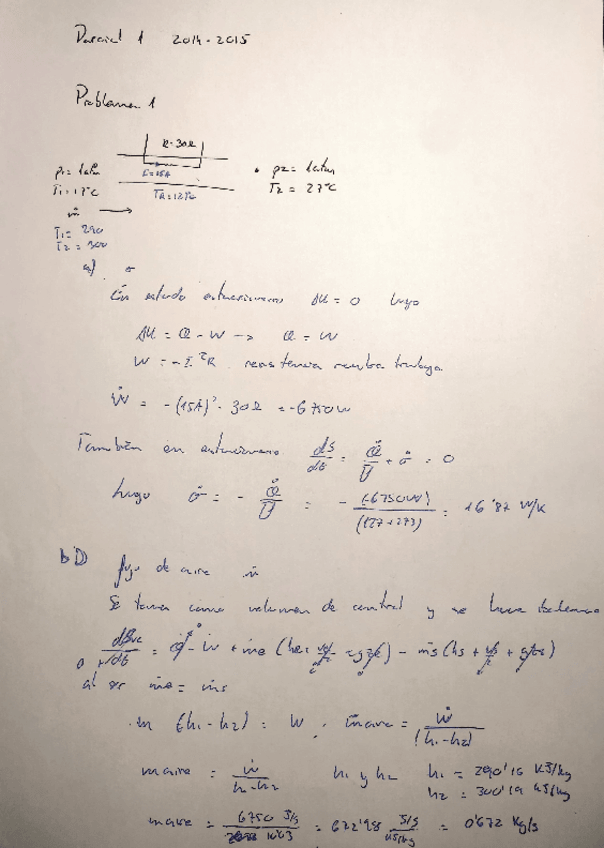 Parcial 1 2014-2015
Problema 1
R=30Ω
p1= 1atm
T1=17ºC
I=15A
TR=127ºC
p2= 1atm
T2 = 27ºC
ṁ →
T1= 290
T2= 300
a) σ
En estado estacionario ΔU = 0 luego
ΔU = Q - W -> Q = W
W = - I²R resistencia trabajo
Ẇ = -(15A)²· 30Ω = -6750W
También en estacionario ds/dt = Q̇/T + σ̇ = 0
luego σ̇ = - Q̇/T = - (-6750W)/(127+273) = 16'87 W/K
b) flujo de aire ṁ
Se toma como volumen de control y se hace
al ser ṁe = ṁs
ṁ (h1-h2) = Ẇ . ṁaire = Ẇ/(h1-h2)
maire = Ẇ/h1-h2 h1 y h2 h1 = 290'16 KJ/kg
h2 = 300'19 KJ/kg
maire = 6750 J/s / 10'03 = 672'98 J/s / KJ/kg = 0'672 Kg/s